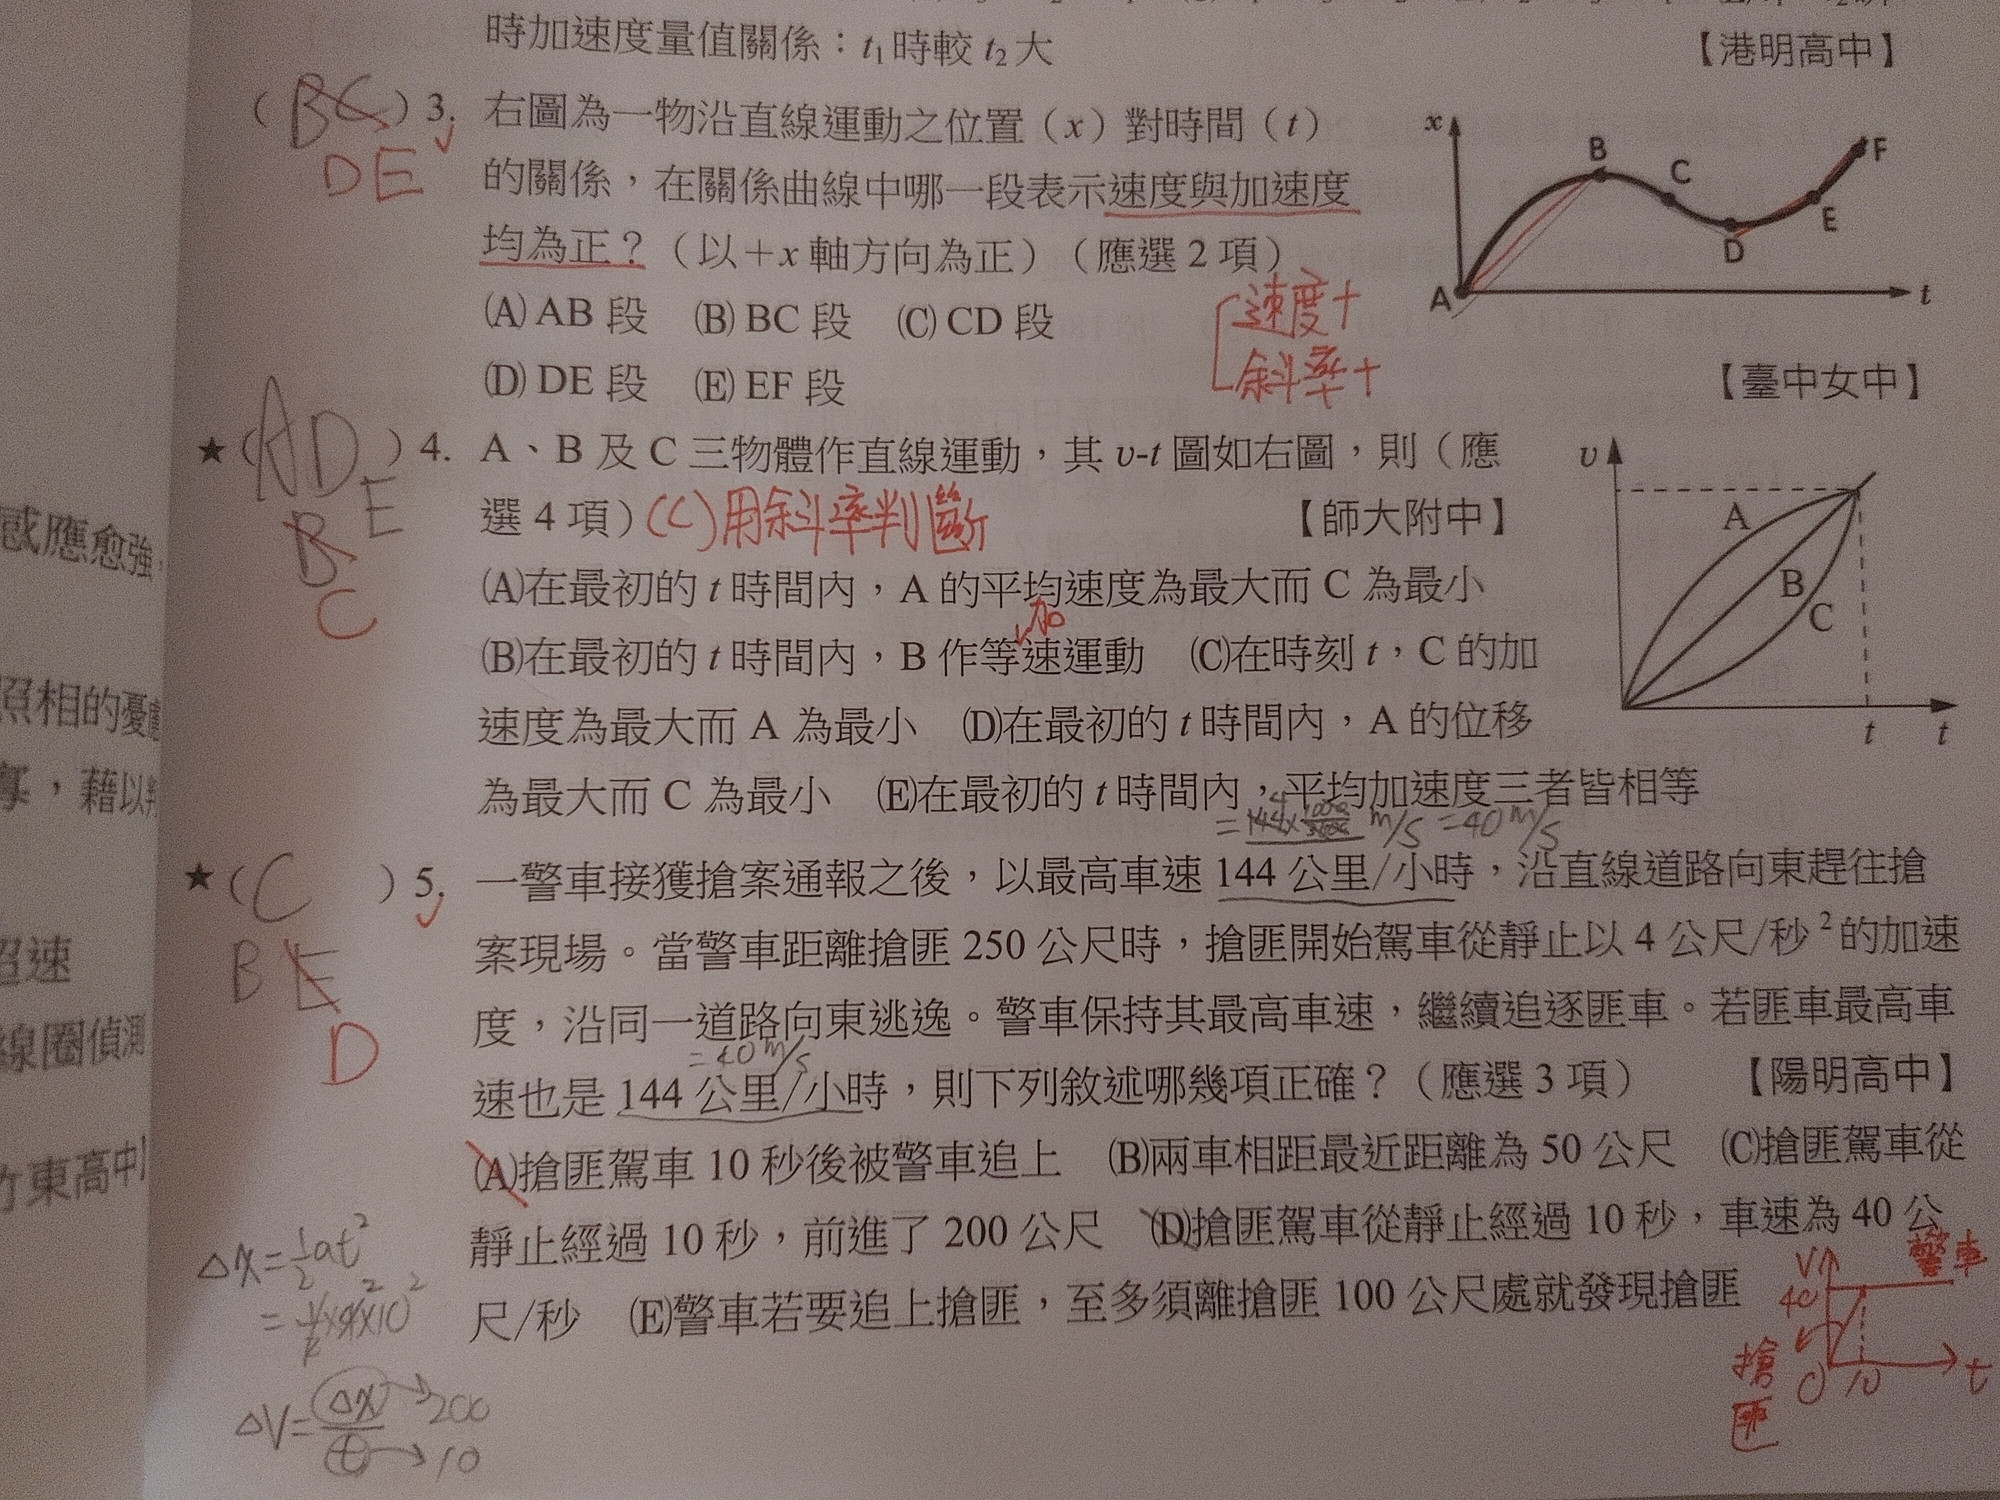 時加速度量值關係：t₁時較 t₂大
【港明高中】
(BC) 3. 右圖為一物沿直線運動之位置（x）對時間（t）
DE
的關係，在關係曲線中哪一段表示速度與加速度
均為正？（以＋x 軸方向為正）（應選 2 項）
速度＋
斜率＋
(A) AB 段 (B) BC 段 (C) CD 段
(D) DE 段 (E) EF 段
【臺中女中】
x
A
B
C
D
E
F
t
★(AD) 4. A、B 及 C 三物體作直線運動，其 v-t 圖如右圖，則（應
E
B
C
選 4 項）(C)用斜率判斷
【師大附中】
(A)在最初的 t 時間內，A 的平均速度為最大而 C 為最小
加
(B)在最初的 t 時間內，B 作等速運動 (C)在時刻 t，C 的加
速度為最大而 A 為最小 (D)在最初的 t 時間內，A 的位移
為最大而 C 為最小 (E)在最初的 t 時間內，平均加速度三者皆相等
v
A
B
C
t
t
m/s =40 m/s
★(C) 5. 一警車接獲搶案通報之後，以最高車速 144 公里/小時，沿直線道路向東趕往搶
B E
D
案現場。當警車距離搶匪 250 公尺時，搶匪開始駕車從靜止以 4 公尺/秒²的加速
度，沿同一道路向東逃逸。警車保持其最高車速，繼續追逐匪車。若匪車最高車
=40 m/s
速也是 144 公里/小時，則下列敘述哪幾項正確？（應選 3 項）
【陽明高中】
(A)搶匪駕車 10 秒後被警車追上 (B)兩車相距最近距離為 50 公尺 (C)搶匪駕車從
靜止經過 10 秒，前進了 200 公尺 (D)搶匪駕車從靜止經過 10 秒，車速為 40 公
尺/秒 (E)警車若要追上搶匪，至多須離搶匪 100 公尺處就發現搶匪
ΔX=½at²
ΔV=ΔX/t
200
10
V
警車
40
搶匪
0
10
t
感應愈強，
照相的憂
，藉以
超速
線圈偵測
竹東高中